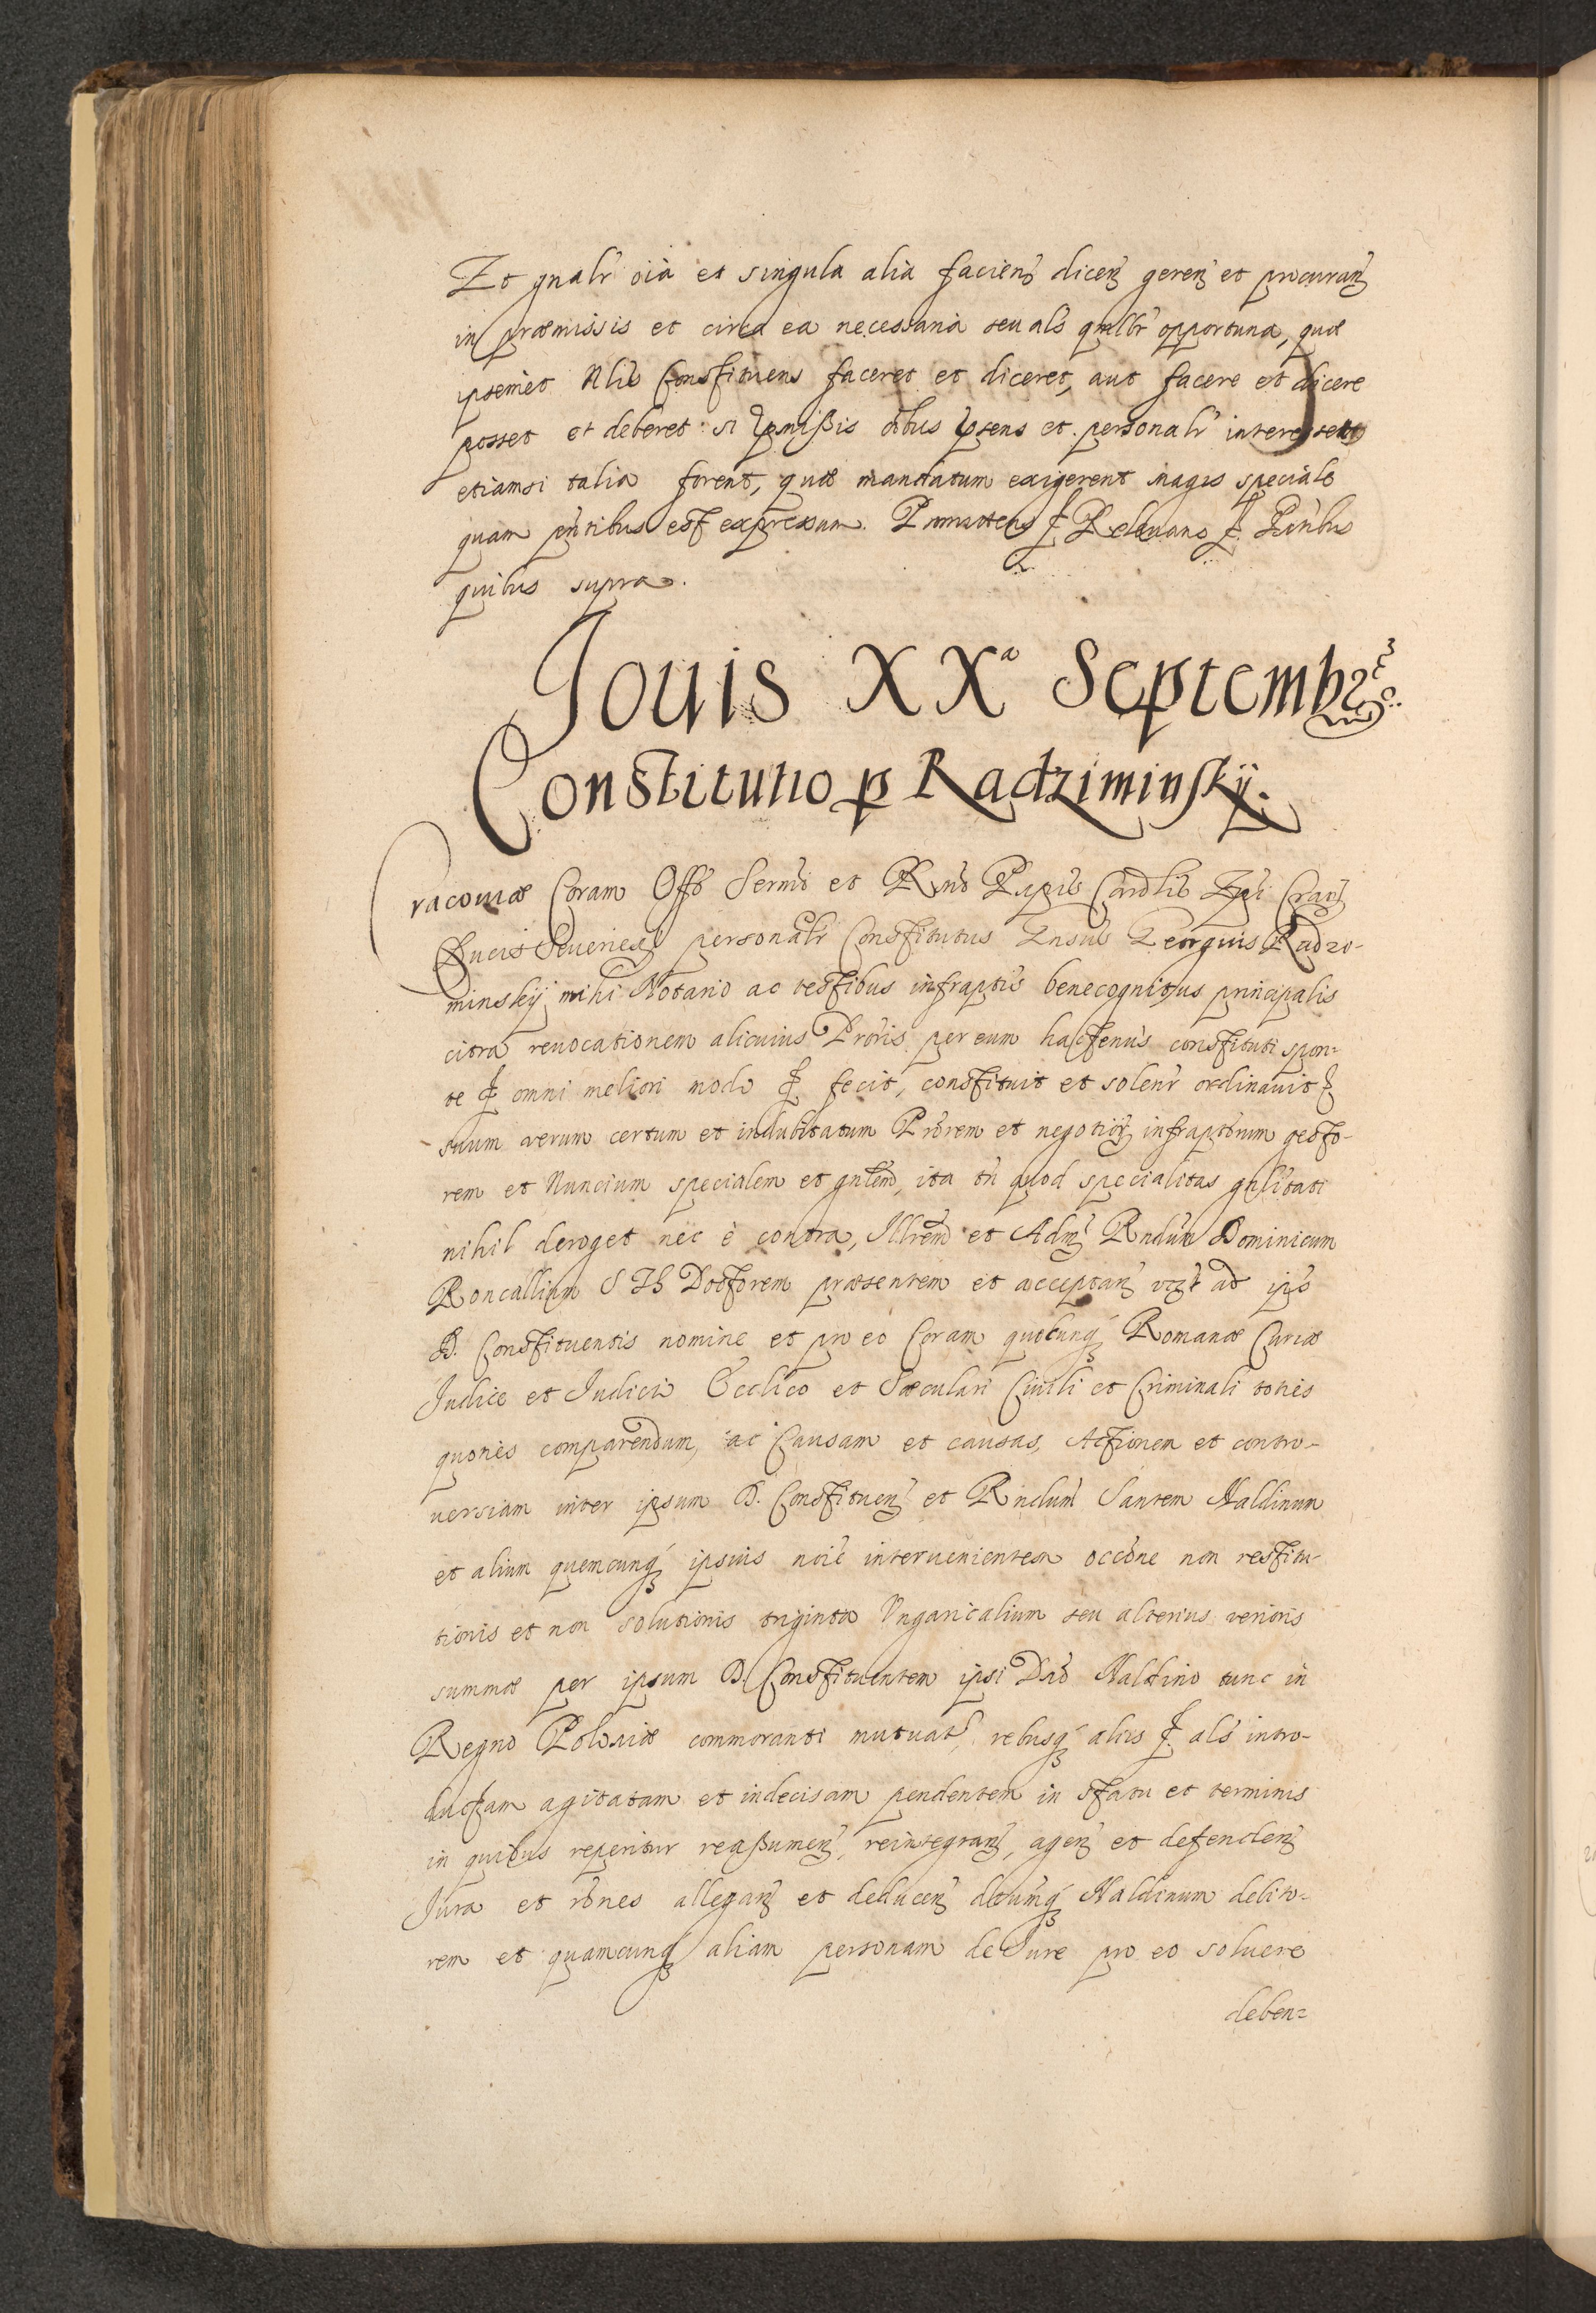 Et gnalr oia et singula alia faciend dicen geren et procuran
in præmissis et circa ea necessaria seu als qmlbr opportuna, quæ
ipsemet Constituens faceret et diceret, aut facere et dicere
posset et deberet si pmißis oibus psens et personalr interesset
etiamsi talia forent, quæ mandatum exigerent magis speciale
quam pntibus est expressum. Promittens Releuans Pntibus
quibus supra.
Jouis XXa Septembr
Constitutio p Radziminskÿ.
Cracouiæ Coram Offo Sermi et Rmi Pnpis Cardlis Epi Cracn
Ducis Seueriens personalr Constitutus Georgius Radzi-
minskÿ mihi Notario ac testibus infraptis benecognitus principalis
citra reuocationem alicuius Proris per eum hactenus constituti spon=
te omni meliori modo fecit, constituit et solenr ordinauit
suum verum certum et indubitatum Prorem et negotior infraptorum gesto-
rem et Nuncium specialem et gnlem, ita tn quod specialitas gnlitati
nihil deroget nec è contra, Illrem et Adm Rndum Dominicum
Roncallium S Th Doctorem præsentem et acceptan vizt ad ipso
D. Constituentis nomine et pro eo Coram quocunq Romanæ Curiæ
Judice et Judicio Ecclico et Sæculari Ciuili et Criminali toties
quoties comparendum, ac Causam et causas, Actionem et contro-
uersiam inter ipsum D. Constituen et Rndum Santem Naldinum
et alium quemcunq ipsius noie interuenientem occone non restitu-
tionis et non solutionis triginta Vngaricalium seu alterius verioris
summæ per ipsum D. Constituentem ipsi Dno Naldino tunc in
Regno Poloniæ commoranti mutuat, rebusq aliis als intro-
ductam agitatam et indecisam pendentem in statu et terminis
in quibus reperitur reaßumen, reintegran, agen et defenden
Jura et rones allegan et deducen dtumq Naldinum debito-
rem et quamcunq aliam personam de Jure pro eo soluere
deben=